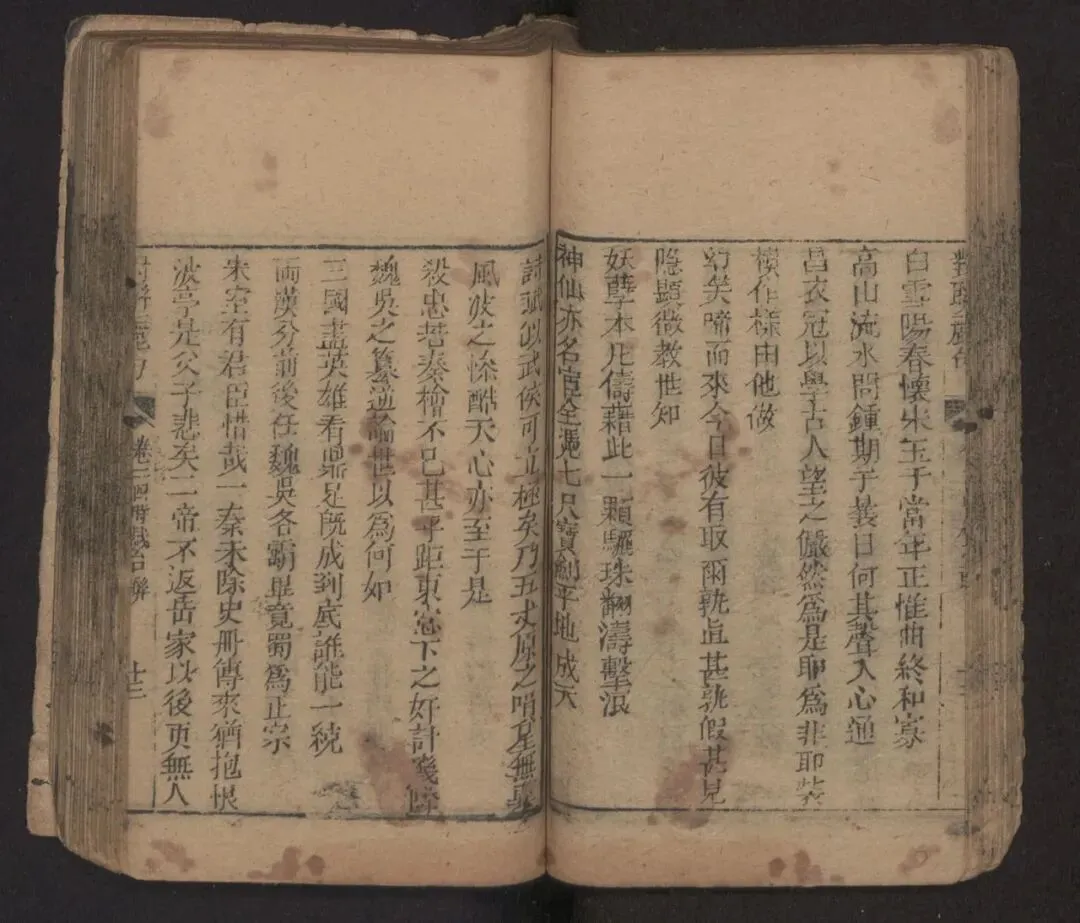 白雪陽春懷宋玉于當年正惟曲終和寡
高山流水問鍾期于曩日何其聲入心通
昌衣冠以學古人望之儼然為是耶為非耶裝
模作樣由他做
幻笑啼而來今日彼有取爾孰眞甚孰假甚見
隱顯微教世知
妖孽本凡儔藉此一顆驪珠翻濤擊浪
神仙亦名宦全憑七尺寶劍平地成天
詩誠似武侯可止極矣乃五丈原之唄星無
風波之慘酷天心亦至于是
殺忠若秦檜不已甚乎距東窓下之奸計殘
魏吳之篡逆論世以為何如
三國盡英雄看鼎足旣成到底誰能一統
兩漢分前後任魏吳各霸畢竟蜀為正宗
朱空有君臣惜哉一秦未除史冊傳來猶抱恨
波亭是父子悲矣二帝不返岳家以後更無人
卷二 戲台聯
十二